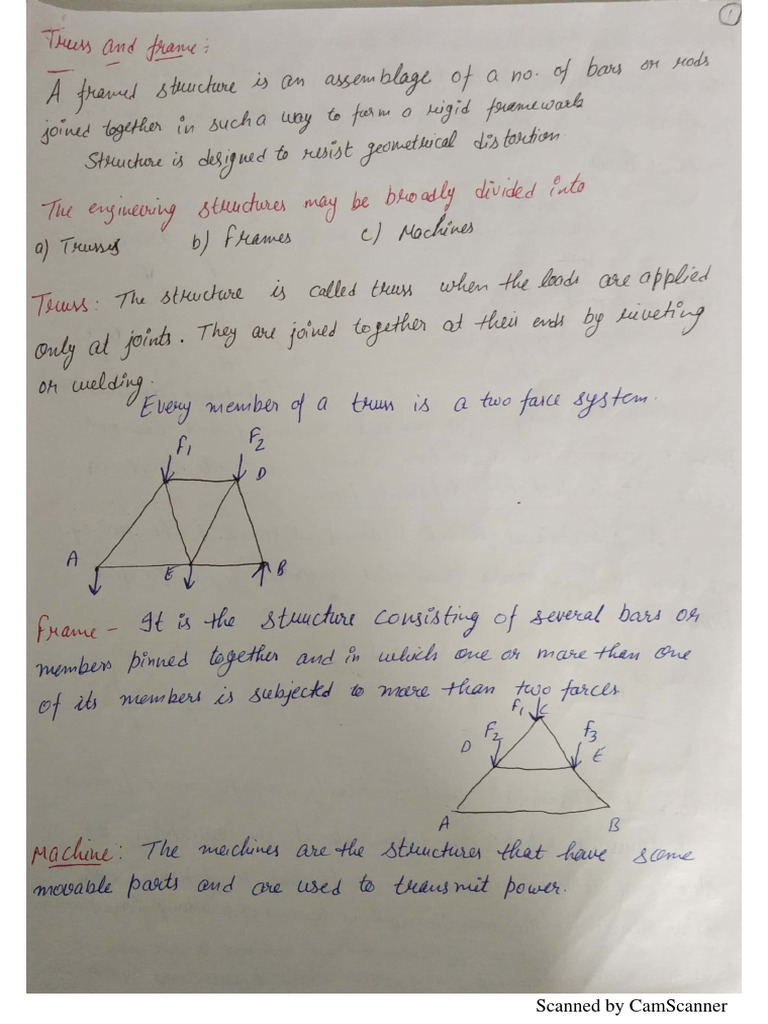 1
Truss and frame:
A framed structure is an assemblage of a no. of bars or rods
joined together in such a way to form a rigid framework
Structure is designed to resist geometrical distortion.
The engineering structures may be broadly divided into
a) Trusses b) Frames c) Machines
Truss: The structure is called truss when the loads are applied
only at joints. They are joined together at their ends by riveting
or welding.
Every member of a truss is a two force system.
F1 F2
D
A E B
Frame - It is the structure consisting of several bars or
members pinned together and in which one or more than one
of its members is subjected to more than two forces
F1 C
D F2 F3 E
A B
Machine: The machines are the structures that have some
movable parts and are used to transmit power.
Scanned by CamScanner